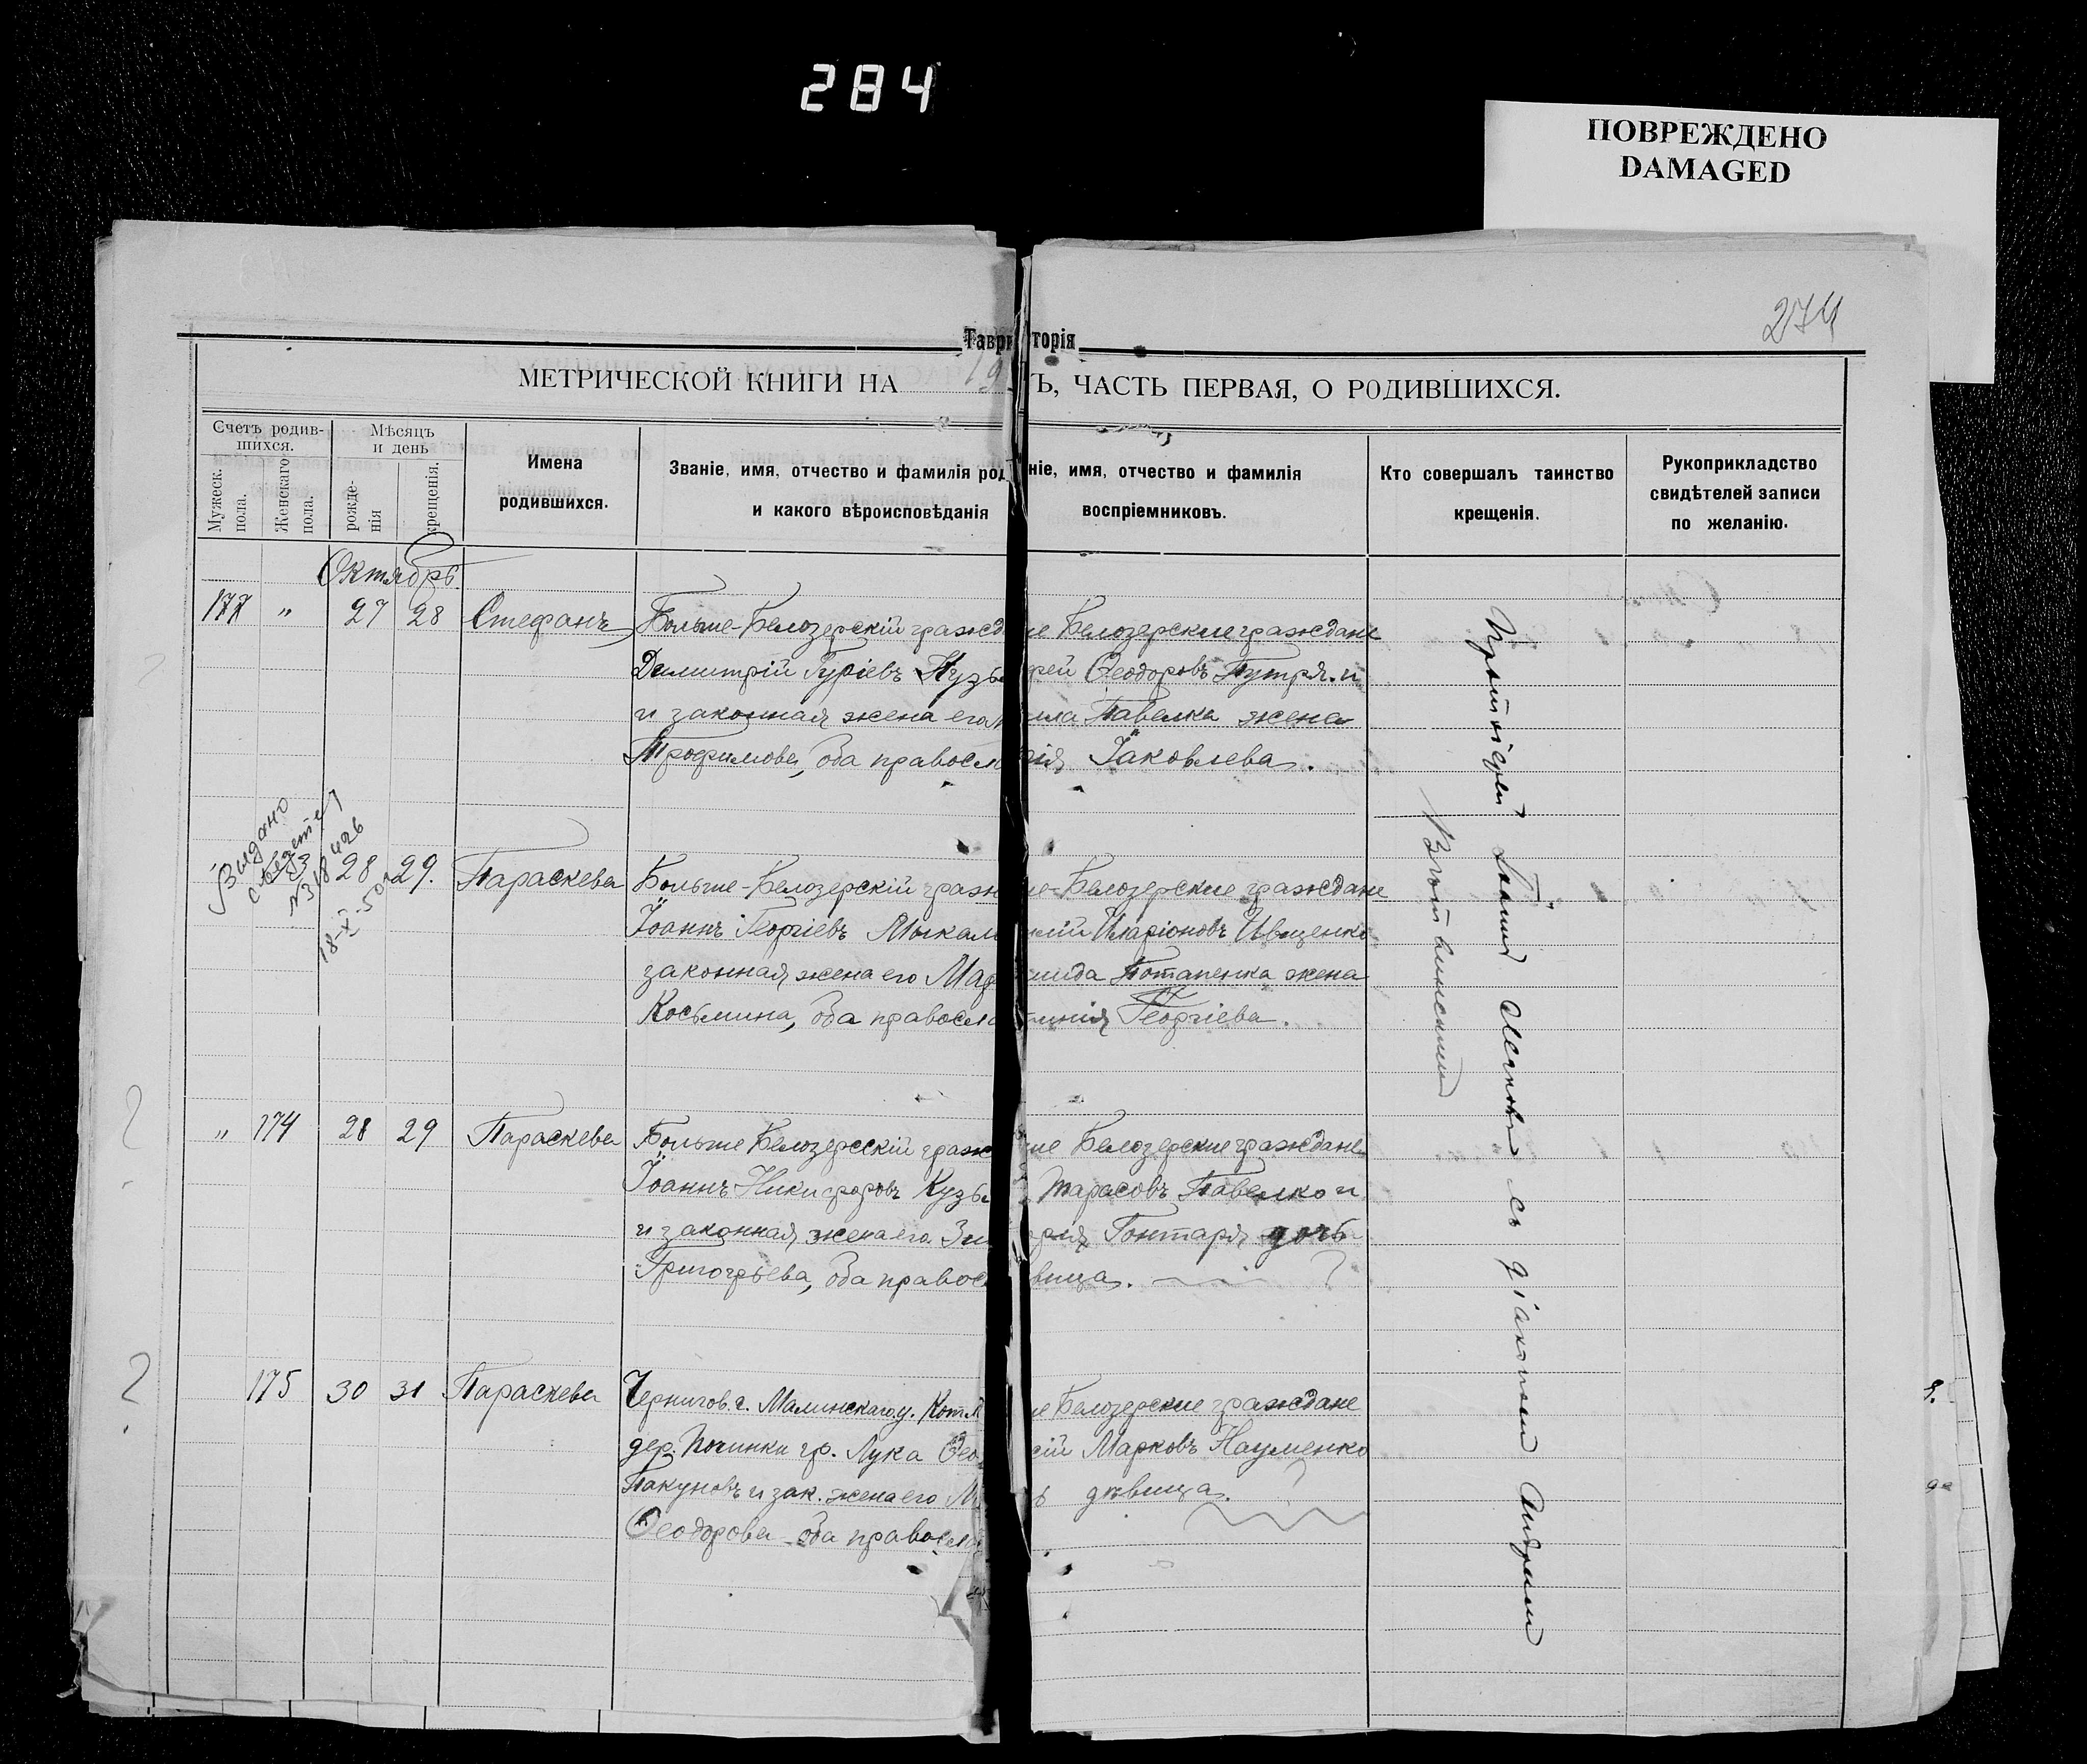 284
ПОВРЕЖДЕНО
DAMAGED
274
Таври торія
МЕТРИЧЕСКОЙ КНИГИ НА 19 Ъ, ЧАСТЬ ПЕРВАЯ, О РОДИВШИХСЯ.
Счетъ родив-
шихся.
Мужеск.
пола.
Женскаго
пола.
Мѣсяцъ
и день
рожде-
нія
крещенія.
Имена
родившихся.
Званіе, имя, отчество и фамилія род
и какого вѣроисповѣданія
ніе, имя, отчество и фамилія
воспріемниковъ.
Кто совершалъ таинство
крещенія.
Рукоприкладство
свидѣтелей записи
по желанію.
Октябрь
177 " 27 28 Стефанъ
Больше-Белозерскій гражд
Димитрій Гуріевъ Кузь
и законная жена его
Трофимова, оба правосла
ие Белозерские граждане
рей Ѳеодоровъ Путря и
ила Павелка жена
рія Іаковлева.
Выдано
№ 318426
18-X-50
28 29. Параскева
Больше-Белозерскій граж
Іоаннъ Георгіевъ Мыкал
законная жена его Мар
Косьмина, оба правосла
е-Белозерские граждане
Иларіоновъ Иващенко
мида Потапенка жена
Георгіева.
" 174 28 29 Параскева
Больше Белозерскій граж
Іоаннъ Никифоровъ Кузь
и законная жена его Зи
Григорьева, оба правос
ие Белозерские граждане
Тарасовъ Павелко и
рія Гонтаря дочь
вица.
175 30 31 Параскева
Чернигов. г. у.
дер. Починки гр. Лука Ѳео
Пакуновъ и зак. жена его М
Ѳеодорова оба правосла
ие Белозерские граждане
сій Марковъ Науменко
ь дѣвица.
Протоіерей Іоаннъ съ діакономъ Андреем